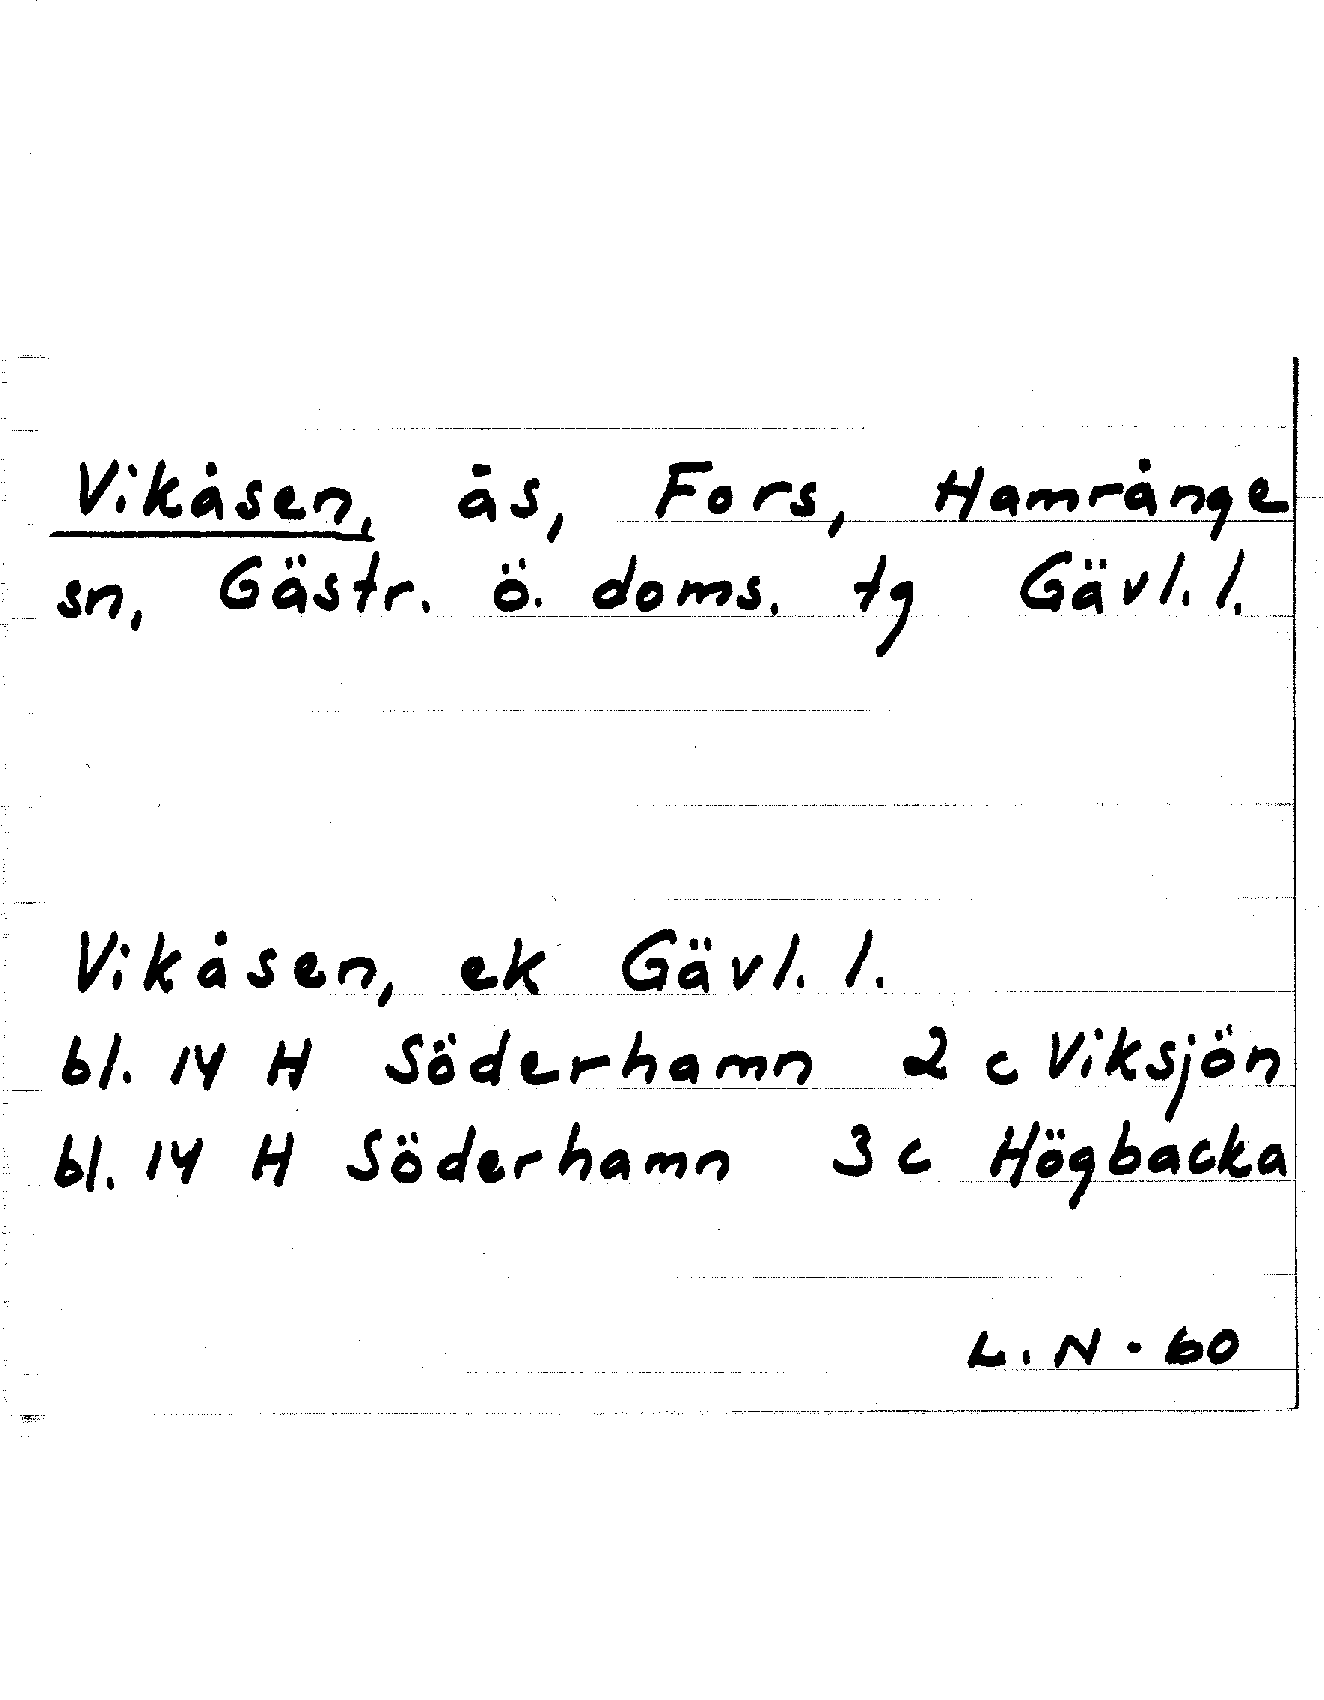 Vikåsen, ås, Fors, Hamrånge
sn, Gästr. ö. doms. tg Gävl. l.
Vikåsen, ek Gävl. l.
bl. 14 H Söderhamn 2 c Viksjön
bl. 14 H Söderhamn 3 c Högbacka
L. N - 60